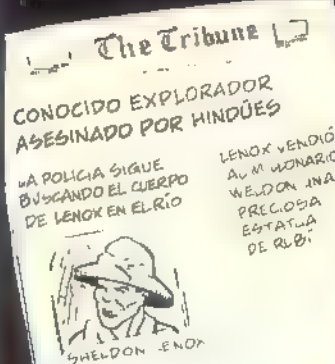 The Tribune
CONOCIDO EXPLORADOR
ASESINADO POR HINDÚES
LA POLICIA SIGUE
BUSCANDO EL CUERPO
DE LENOX EN EL RÍO
SHELDON LENOX
LENOX VENDIÓ
AL MILLONARIO
WELDON UNA
PRECIOSA
ESTATUA
DE RUBÍ